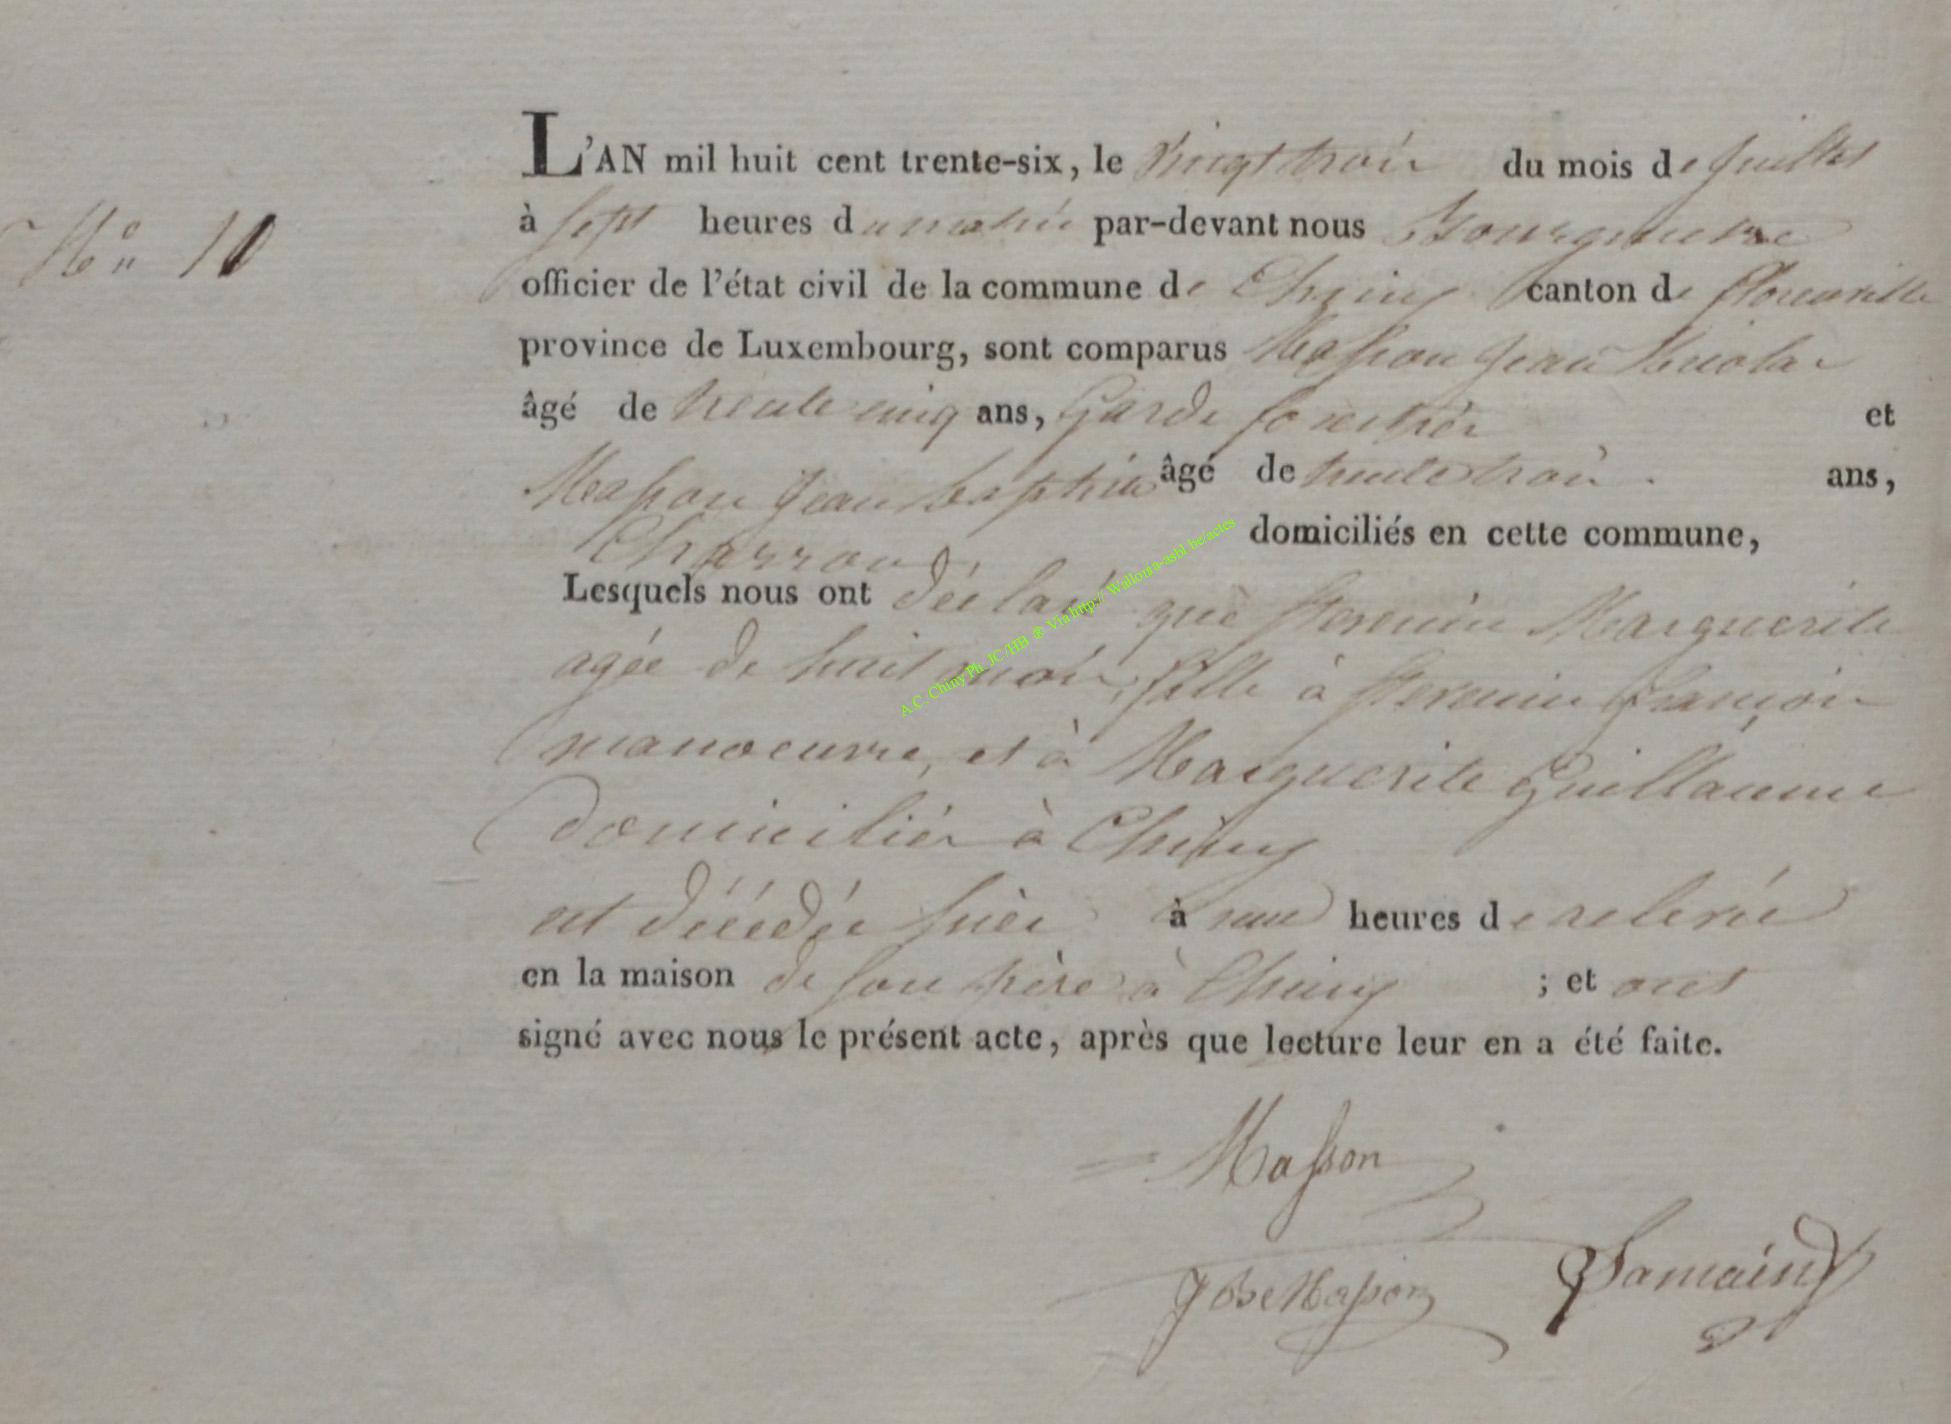 L'AN mil huit cent trente-six, le vingt trois du mois de juillet
N° 10
à sept heures du matin par-devant nous Bourgmestre
officier de l'état civil de la commune de Chiny canton de florenville
province de Luxembourg, sont comparus Masson Jean Nicolas
âgé de trente cinq ans, Garde forestier et
Masson Jean baptiste âgé de trente trois ans,
Charron domiciliés en cette commune,
Lesquels nous ont déclaré que Marguerite
agée de huit mois, fille à françois
manoeuvre, et à Marguerite Guillaume
domiciliés à Chiny
est décédée hier à heures de relevée
en la maison de son père à Chiny ; et ont
signé avec nous le présent acte, après que lecture leur en a été faite.
Masson
JBte Masson Samain
A.C. Chiny Ph. JC/HB ® Via http:// Wallonia-asbl.be/actes